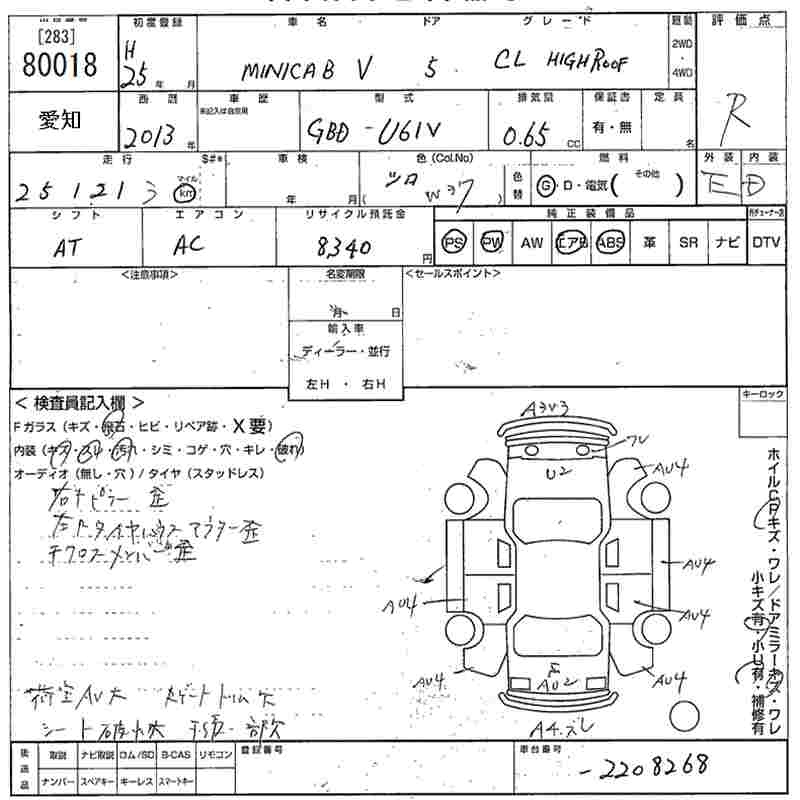 初度登録 車名 ドア グレード 評価点
[283]
80018
H 25年 月
MINICAB V 5 CL HIGHROOF
2WD
4WD
R
愛知
西暦 車歴 型式 排気量 保証書 定員
未記入は自家用
2013年 GBD-U61V 0.65 CC 有・無 名
走行 S#* 車検 色(Col.No) 燃料 外装 内装
25121 マイル km 年 月 シロ W37 色替 G・D・電気( その他 ) E D
シフト エアコン リサイクル預託金 純正装備品
AT AC 8,340円 PS PW AW エアB ABS 革 SR ナビ DTV
<注意事項> 名変期限 <セールスポイント>
月 日
輸入車
ディーラー・並行
左H ・ 右H
キーロック
< 検査員記入欄 >
Fガラス(キズ・飛石・ヒビ・リペア跡・X要)
内装(キズ・スレ・汚れ・シミ・コゲ・穴・キレ・破れ)
オーディオ(無し・穴)/タイヤ(スタッドレス)
右Fピラー 歪
左Fタイヤハウス アウター歪
Fクロスメンバー歪
荷室AU大
シート破れ大
A3V3
U2
AU4
AU4
AU4
AU4
AU4
AU4
AU2
A4.ズレ
ホイルCPキズ・ワレ/ドアミラーキズ・ワレ
小キズ有・小U有・補修有
後送品 取説 ナビ取説 ロム/SD B-CAS リモコン 登録番号 車台番号
ナンバー スペアキー キーレス スマートキー
-2208268